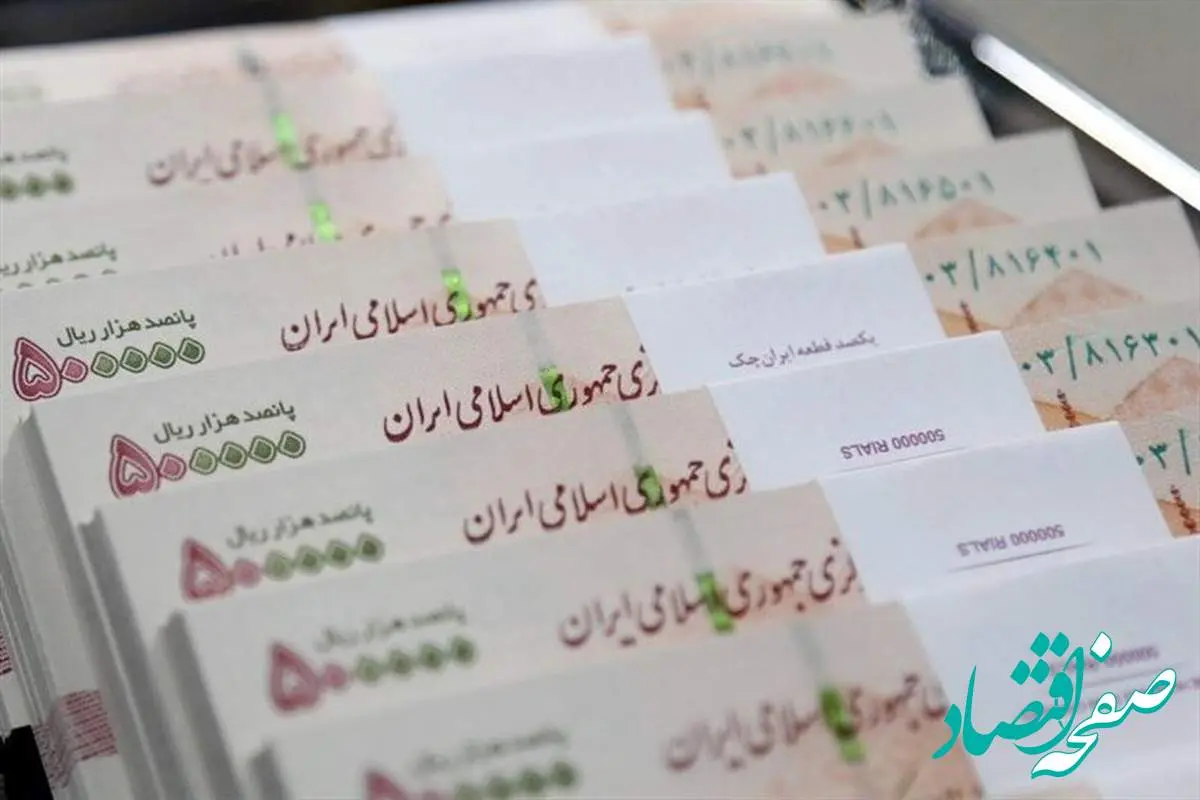 جمهوری اسلامی ایران
۰۳/۸۱۶۶۰۱
۰۳/۸۱۶۵۰۱
پانصد هزار ریال
۵۰۰۰۰۰
ری جمهوری اسلامی ایران
۰۳/۸۱۶۴۰۱
پانصد هزار ریال
۵۰۰۰۰۰
زی جمهوری اسلامی ایران
یکصد قطعه ایران چک
۰۳/۸۱۶۳۰۱
پانصد هزار ریال
۵۰۰۰۰۰
زی جمهوری اسلامی ایران
500000 RIALS
۰۳/
پانصد هزار ریال
۵۰۰۰۰۰
زی جمهوری اسلامی ایران
500000 RIALS
جمهوری اسلامی ایران
صفحه اقتصاد